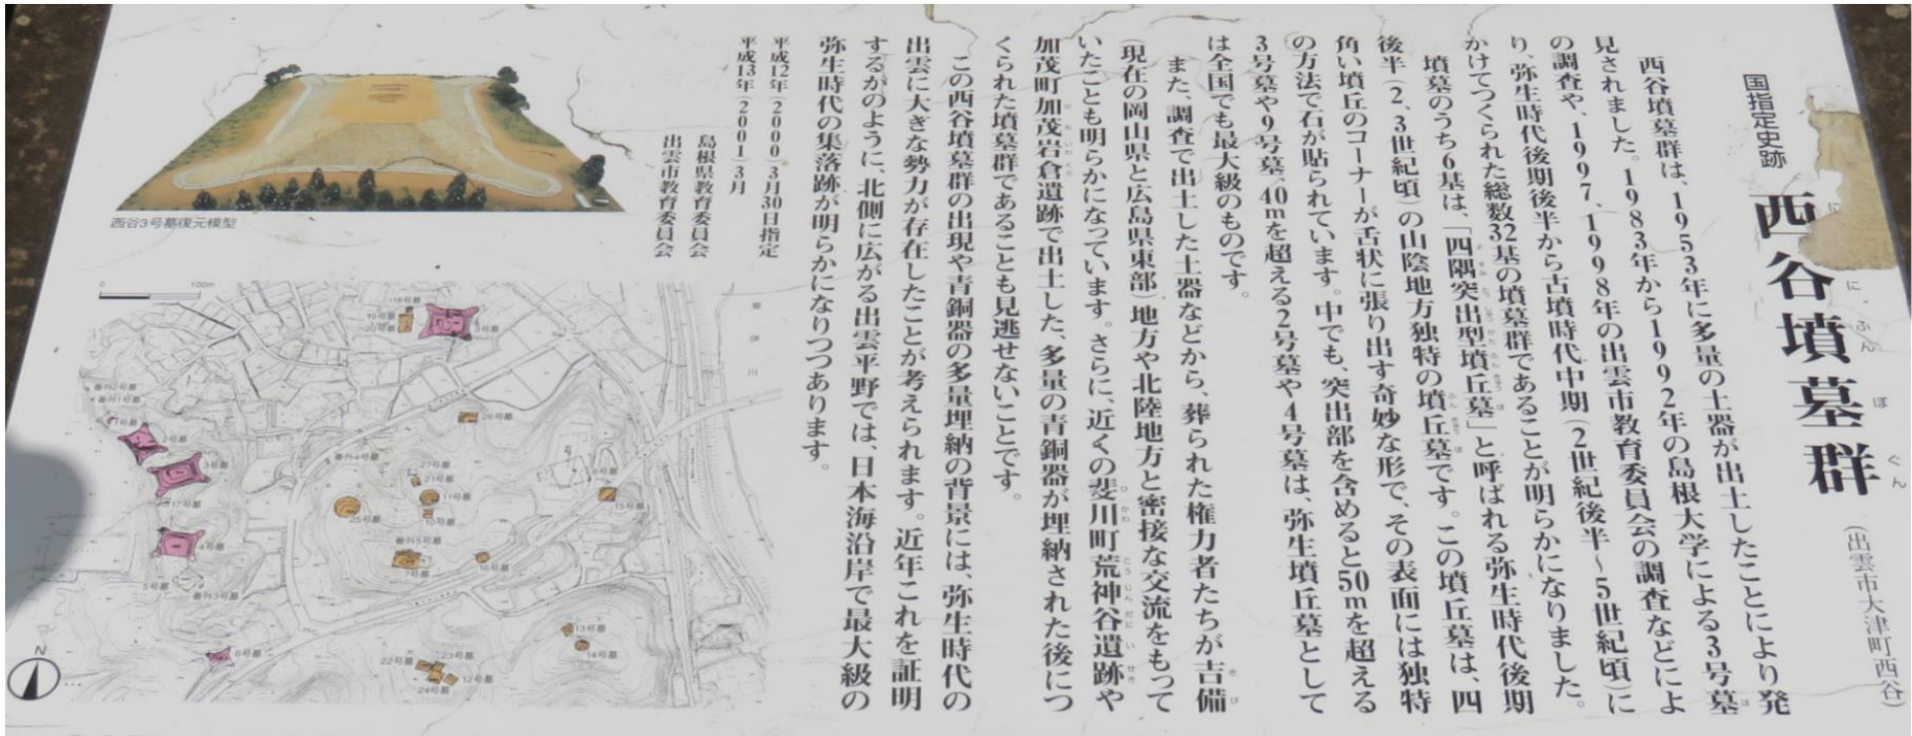 国指定史跡
西谷墳墓群
に
に ふん ぼ ぐん
(出雲市大津町西谷)
西谷墳墓群は、1953年に多量の土器が出土したことにより発
見されました。1983年から1992年の島根大学による3号墓
の調査や、1997、1998年の出雲市教育委員会の調査などによ
り、弥生時代後期後半から古墳時代中期(2世紀後半~5世紀頃)に
かけてつくられた総数32基の墳墓群であることが明らかになりました。
墳墓のうち6基は、「四隅突出型墳丘墓」と呼ばれる弥生時代後期
後半(2、3世紀頃)の山陰地方独特の墳丘墓です。この墳丘墓は、四
角い墳丘のコーナーが舌状に張り出す奇妙な形で、その表面には独特
の方法で石が貼られています。中でも、突出部を含めると50mを超える
3号墓や9号墓、40mを超える2号墓や4号墓は、弥生墳丘墓として
は全国でも最大級のものです。
また、調査で出土した土器などから、葬られた権力者たちが吉備
き び
(現在の岡山県と広島県東部)地方や北陸地方と密接な交流をもって
いたことも明らかになっています。さらに、近くの斐川町荒神谷遺跡や
ひかわ こうじんだに いせき
加茂町加茂岩倉遺跡で出土した、多量の青銅器が埋納された後につ
くられた墳墓群であることも見逃せないことです。
この西谷墳墓群の出現や青銅器の多量埋納の背景には、弥生時代の
出雲に大きな勢力が存在したことが考えられます。近年これを証明
するかのように、北側に広がる出雲平野では、日本海沿岸で最大級の
弥生時代の集落跡が明らかになりつつあります。
平成12年(2000)3月30日指定
平成13年(2001)3月
島根県教育委員会
出雲市教育委員会
西谷3号墓復元模型
0 100m
18号墓
19号墓
20号墓
9号墓
斐伊川
番外2号墓
番外1号墓
1号墓
2号墓
3号墓
17号墓
4号墓
5号墓
番外3号墓
6号墓
26号墓
番外4号墓
27号墓
21号墓
11号墓
10号墓
25号墓
番外5号墓
7号墓
16号墓
8号墓
15号墓
13号墓
14号墓
22号墓
23号墓
12号墓
24号墓
N